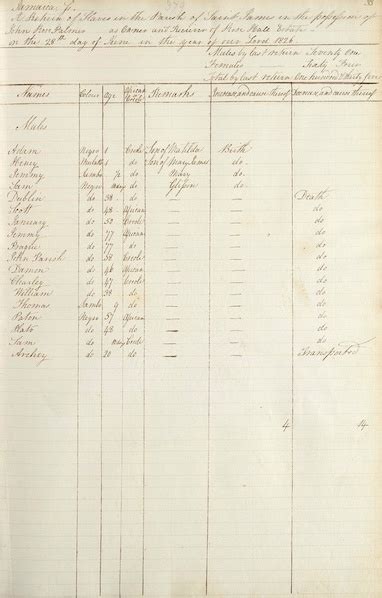 Jamaica ss.
A Return of Slaves in the Parish of Saint James in the possession of
John Rose Palmer as Owner and Receiver of Rose Hall Estate
on the 28th day of June in the year of our Lord 1826.
Males by last return Seventy One
Females Sixty Four
Total by last return One hundred & thirty five
Names Colour Age African or Creole Remarks Increase and cause thereof Decrease and cause thereof
Males
Adam Negro 1 Creole Son of Matilda Birth
Henry Mulatto 1 do Son of Mary James do
Jemmy Sambo do Mary do
Sam Negro do Gipsey do
Dublin do 38 do — — Death
Scott do 48 African — — do
January do 53 Creole — — do
Jemmy do 77 African — — do
Prague do 77 do — — do
John Parish do 38 Creole — — do
Damon do 48 African — — do
Charley do 47 Creole — — do
William do 38 do — — do
Thomas Sambo 9 do — — do
Paton Negro 57 African — — do
Plato do 48 do — — do
Sam do Creole — — do
Archey do 20 do — — Transported
4 14